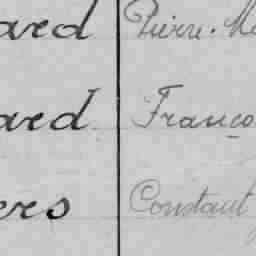 ard Pierre. Me
ard Franço
ers Constant